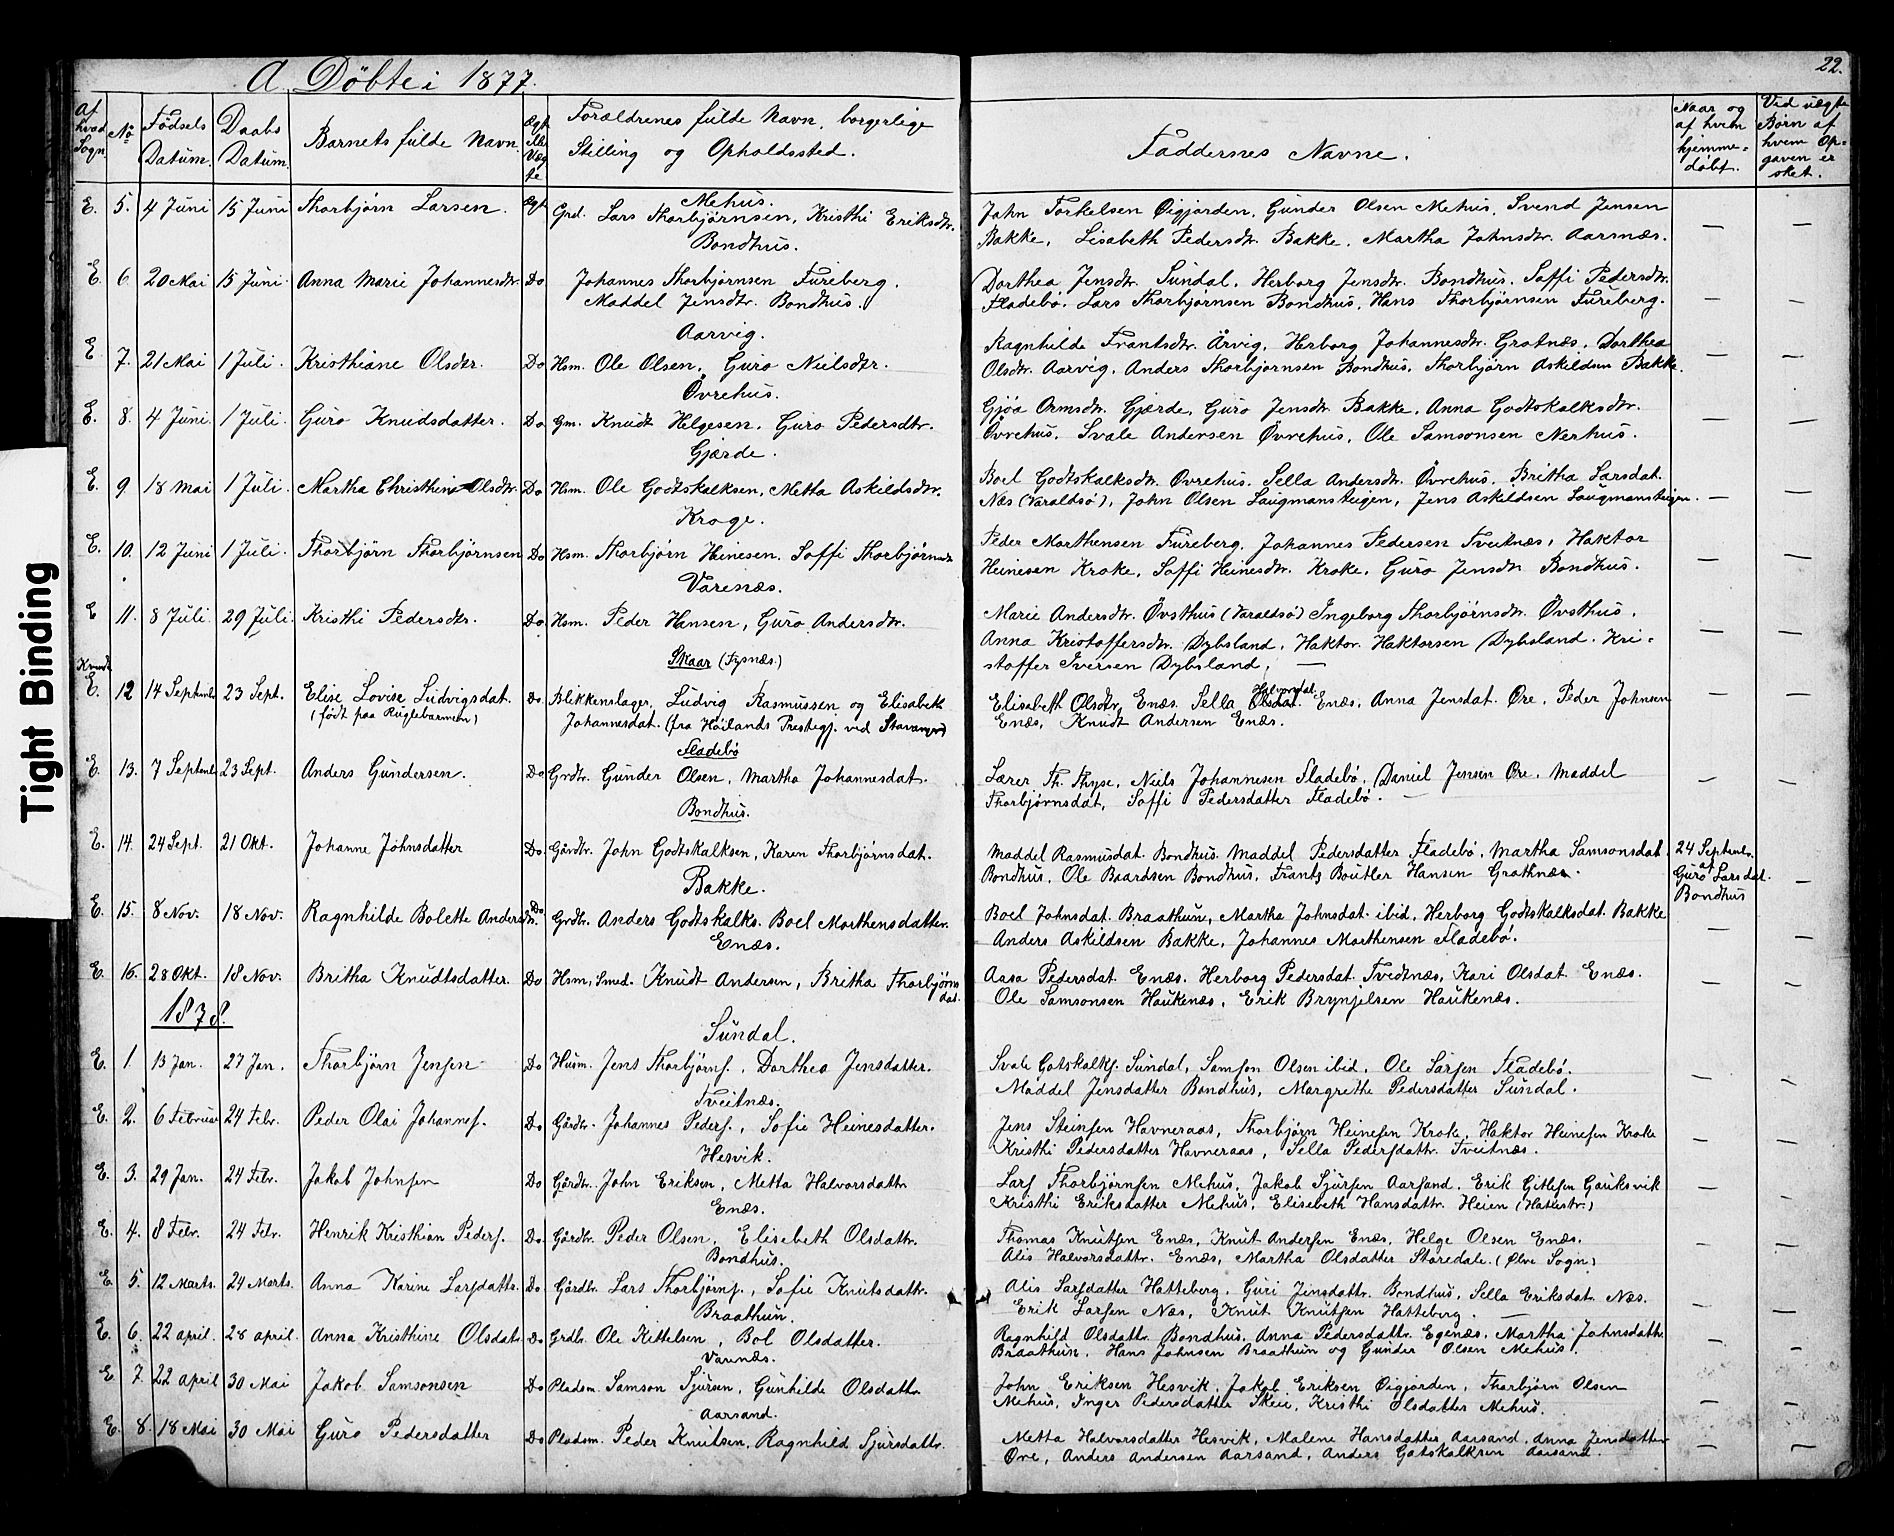 A. Döbte i 1877.
22.
Af hvad Sogn. | No | Födsels Datum. | Daabs Datum. | Barnets fulde Navn. | Ægte eller Uægte | Forældrenes fulde Navn, borgerlige Stilling og Opholdssted. | Faddernes Navne. | Naar og af hvem hjemmedöbt. | Ved uægte Börn af hvem Opgaven er sket.
Mehus.
E. 5. 4 Juni 15 Juni Thorbjörn Larsen. Ægte Grd. Lars Thorbjörnsen, Kristhi Eriksdtr. John Torkelsen Øigjorden, Gunder Olsen Mehus, Svend Jensen
Bakke, Lisabeth Pedersdtr. Bakke, Martha Johnsdtr. Aarsnæs. — —
Bondhus.
E. 6. 20 Mai 15 Juni Anna Marie Johannesdtr. Do Johannes Thorbjörnsen Fureberg, Dorthea Jensdtr. Sundal, Herborg Jensdtr. Bondhus, Soffi Pedersdtr.
Maddel Jensdtr. Bondhus. Fladebö, Lars Thorbjörnsen Bondhus, Hans Thorbjörnsen Fureberg. — —
Aarvig.
E 7. 21 Mai 1 Juli. Kristhiane Olsdtr. Do Hsm. Ole Olsen, Guro Neilsdtr. Ragnhilde Frantsdtr. Årvig, Herborg Johannesdtr. Gratnæs, Dorthea
Olsdtr. Aarvig, Anders Thorbjörnsen Bondhus, Thorbjörn Askildsen Bakke. — —
Øvrehus.
E. 8. 4 Juni 1 Juli. Guro Knudsdatter. Do Gm. Knudt Helgesen, Guro Pedersdtr. Gjöa Ormsdtr. Gjærde, Guro Jensdtr. Bakke, Anna Godtskalksdtr.
Övrehus, Svale Andersen Övrehus, Ole Samsonsen Nerhus. — —
Gjærde.
E. 9. 18 Mai 1 Juli. Martha Christhine Olsdtr. Do Hsm. Ole Godtskalksen, Metta Askildsdtr. Boel Godtskalksdtr. Övrehus, Sella Andersdtr. Övrehus, Britha Larsdat.
Næs (Varaldsö), John Olsen Laugmansteigen, Jens Askildsen Laugmansteigen. — —
Kroge.
E. 10. 12 Juni 1 Juli. Thorbjörn Thorbjörnsen Do Hsm. Thorbjörn Heinesen, Soffi Thorbjörnsdtr. Peder Morthensen Fureberg, Johannes Pedersen Tveitnæs, Haktor
Heinesen Kroke, Soffi Heinesdtr. Kroke, Guro Jensdtr. Bondhus. — —
Varenæs.
E 11. 8 Juli. 29 Juli. Kristhi Pedersdtr. Do Hsm. Peder Hansen, Guro Andersdtr. Marie Andersdtr. Övsthus (Varaldsö) Ingeborg Thorbjörnsdtr. Övsthus,
Anna Kristoffersdtr. Dybsland, Haktor Haktorsen Dybsland, Kri-
stoffer Iversen Dybsland. — — —
Skaar (Tysnæs.)
E. 12 14 Septembr 23 Sept. Elise Lovise Ludvigsdat. Do. Blikkenslager, Ludvig Rasmussen og Elisabeth Elisabeth Olsdtr. Enæs. Sella Halvorsdat. Enæs, Anna Jensdat. Øre, Peder Johnsen
(født paa Ruglebarmen) Johannesdat. (fra Höilands Prestegj. ved Stavanger) Enæs, Knudt Andersen Enæs. — —
Fladebö
E. 13. 7 Septembr 23 Sept. Anders Gundersen. Do Grdbr. Gunder Olsen, Martha Johannesdat. Lærer Th. Thyse, Niels Johannesen Fladebö, Daniel Jensen Øre, Maddel
Thorbjörnsdat, Soffi Pedersdatter Fladebö. — — —
Bondhus.
E. 14. 24 Sept. 21 Okt. Johanne Johnsdatter Do. Gårdbr. John Godtskalksen, Karen Thorbjörnsdat. Maddel Rasmusdat. Bondhus. Maddel Pedersdatter Fladebö, Martha Samsonsdat. 24 Septembr. af
Bondhus, Ole Baardsen Bondhus, Frants Boutler Hansen Grathnæs. Guro Larsdat. Bondhus —
Bakke.
E. 15. 8 Nov. 18 Nov. Ragnhilde Bolette Andersdtr. Do Grdbr. Anders Godtskalks. Boel Morthensdatter. Boel Johnsdat. Braathun, Martha Johnsdat. ibid, Herborg Godtskalksdat. Bakke
Anders Askildsen Bakke, Johannes Morthensen Fladebö. — —
Enæs.
E. 16. 28 Okt. 18 Nov. Britha Knudtsdatter. Do Hsm, Smed. Knudt Andersen, Britha Thorbjörnsdat. Aasa Pedersdat. Enæs. Herborg Pedersdat. Tvedtnæs, Kari Olsdat Enæs.
Ole Samsonsen Haukenæs, Erik Brynjelsen Haukenæs. — —
1878.
Sundal.
E. 1. 13 Jan. 27 Jan. Thorbjörn Jensen Do Husm. Jens Thorbjörns., Dorthea Jensdatter. Svale Gotskalks. Sundal, Samson Olsen ibid, Ole Larsen Fladebö.
Maddel Jensdatter Bondhus, Margrethe Pedersdatter Sundal. — —
Tveitnæs.
E. 2. 6 Februar 24 Febr. Peder Olai Johannes. Do Gårdbr. Johannes Peders., Sofie Heinesdatter. Jens Steinsen Havneraas, Thorbjörn Heinesen Kroke, Haktor Heinesen Kroke
Kristhi Pedersdatter Havneraas, Sella Pedersdattr. Tveitnæs. — —
Hesvik.
E. 3. 29 Jan. 24 Febr. Jakob Johnsen Do Gårdbr. John Eriksen, Metta Halvorsdattr. Lars Thorbjörnsen Mehus, Jakob Sjursen Aarsand, Erik Gitlesen Gauksvik
Kristhi Eriksdatter Mehus, Elisebeth Hansdattr. Heien (Hatlestr.) — —
Enæs.
E 4. 8 Febr. 24 Febr. Henrik Kristhian Peders. Do. Gårdbr. Peder Olsen, Elisebeth Olsdattr. Thomas Knutsen Enæs, Knut Andersen Enæs, Helge Olsen Enæs.
Alis Halvorsdattr. Enæs, Martha Olsdatter Storedale. (Ølve Sogn) — —
Bondhus.
E 5. 12 Marts. 24 Marts. Anna Karine Larsdattr. Do. Gårdbr. Lars Thorbjörns., Sofie Knutsdattr. Alis Larsdatter Hatteberg, Guri Jensdattr. Bondhus, Sella Eriksdat. Næs.
Erik Larsen Næs, Knut Knutsen Hatteberg. — — —
Braathun.
E. 6. 22 april. 28 april. Anna Kristhine Olsdatr. Do Grdbr. Ole Kittelsen, Bol Olsdatter. Ragnhild Olsdattr. Bondhus, Anna Pedersdattr. Egenæs, Martha Johnsdattr.
Braathun, Hans Johnsen Braathun og Gunder Olsen Mehus. — —
Varenæs.
E 7. 22 april 30 Mai Jakob Samsonsen Do Pladsm. Samson Sjursen, Gunhilde Olsdattr. John Eriksen Hesvik, Jakob Eriksen Øigjorden, Thorbjörn Olsen
Mehus, Inger Pedersdatter Skeie, Kristhi Olsdatter Mehus. — —
Aarsand.
E. 8. 18 Mai 30 Mai Guro Pedersdatter Do Pladsm. Peder Knutsen, Ragnhild Sjursdattr. Metta Halvorsdatter Hesvik, Malene Hansdatter Aarsand, Anna Jensdatter
Øre, Anders Andersen Aarsand, Anders Gotskalksen Aarsand. — —
Tight Binding